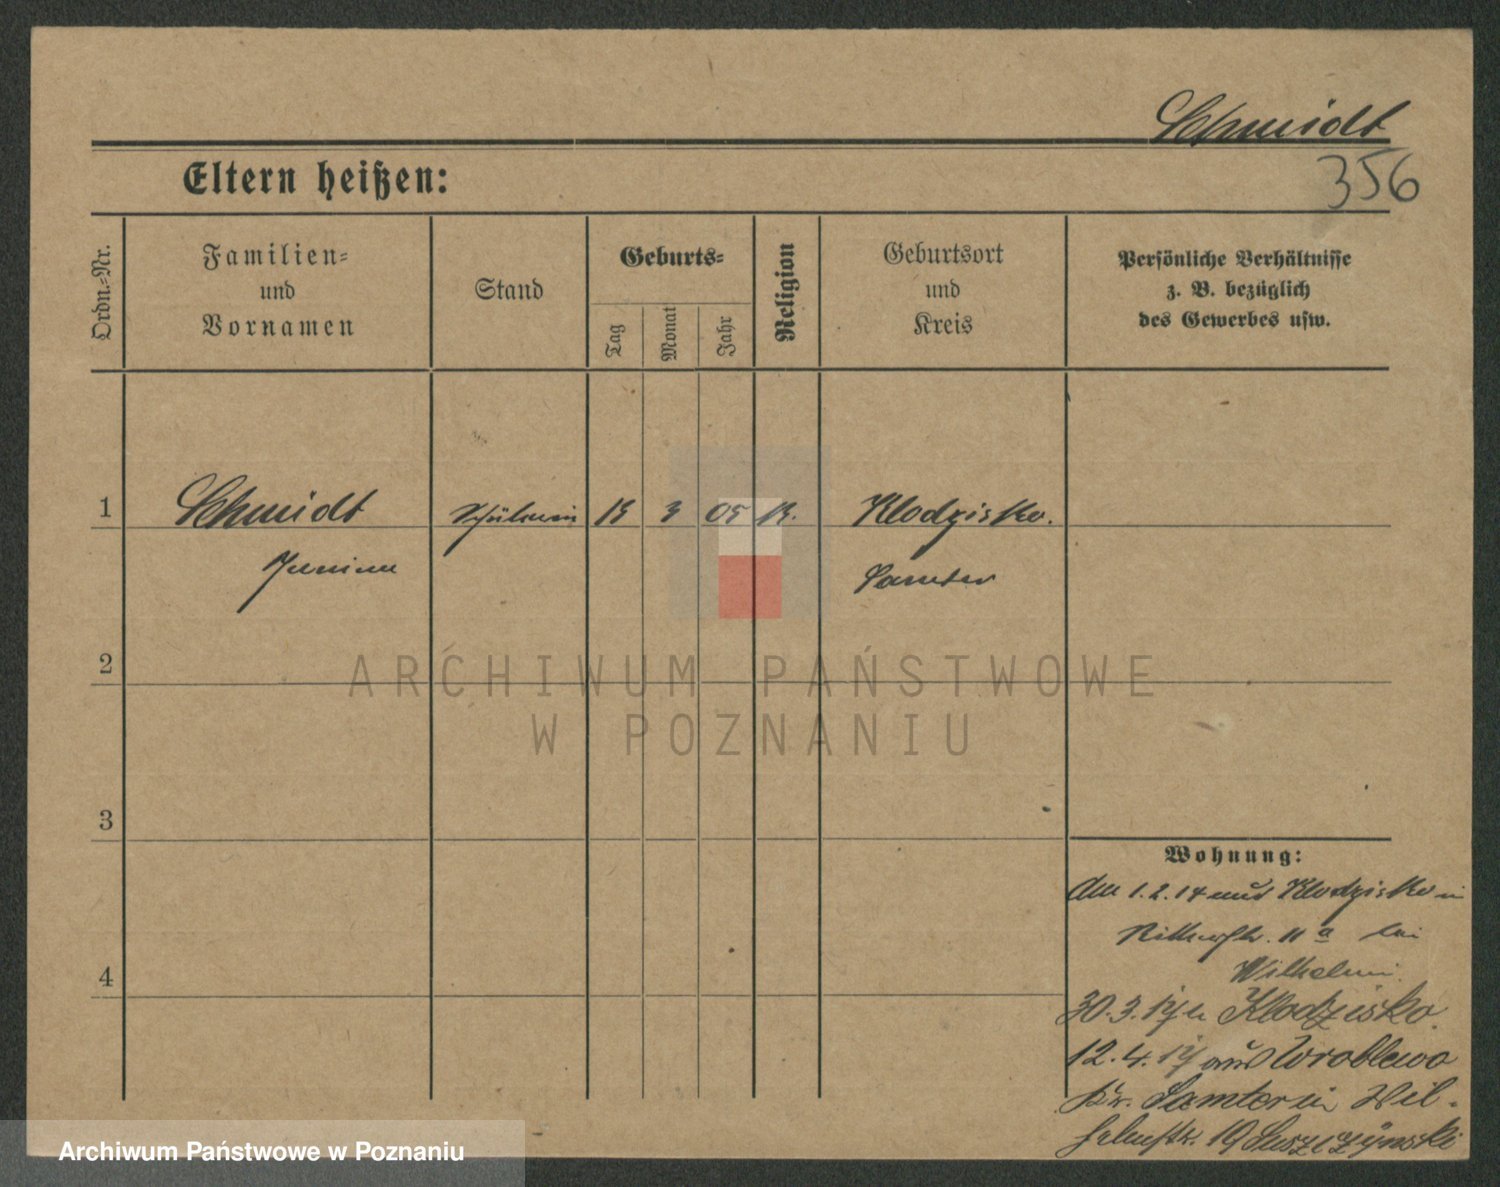 Schmidt
356
Eltern heißen:
Ordn.-Nr.
Familien-
und
Vornamen
Stand
Geburts-
Tag
Monat
Jahr
Religion
Geburtsort
und
Kreis
Persönliche Verhältnisse
z. B. bezüglich
des Gewerbes usw.
1 Schmidt Schülerin 15 3 05 K. Klodzisko.
Samter
2
3
4
Wohnung:
Am 1.2.14 aus Klodzisko in
Ritterstr. 11 a bei
Wilhelmi.
30.3. Klodzisko.
12.4. aus Wroblewo
Kr. Samter in Wil-
helmstr. 19 Luszczynski
ARCHIWUM PAŃSTWOWE
W POZNANIU
Archiwum Państwowe w Poznaniu